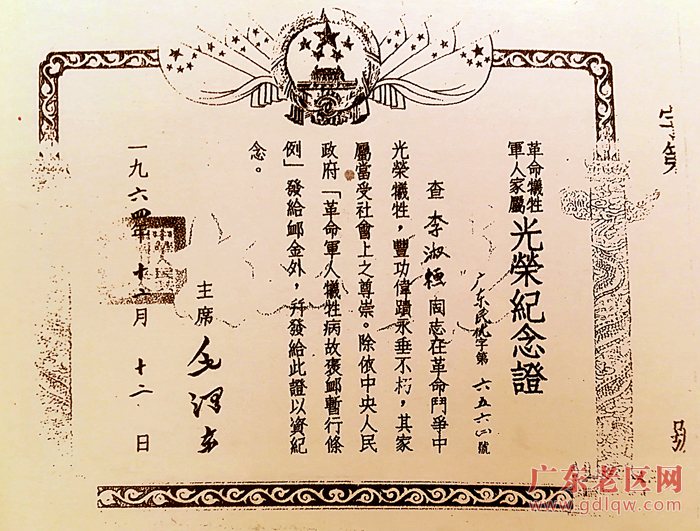 革命犧牲
軍人家屬
光榮紀念證
广东民优字第六五六四號
查李淑桓同志在革命鬥爭中
光榮犧牲，豐功偉蹟永垂不朽，其家
屬當受社會上之尊崇。除依中央人民
政府「革命軍人犧牲病故褒邮暫行條
例」發給邮金外，幷發給此證以資紀
念。
主席 毛澤东
一九六四年十二月十二日
广东老区网
www.gdlqw.com